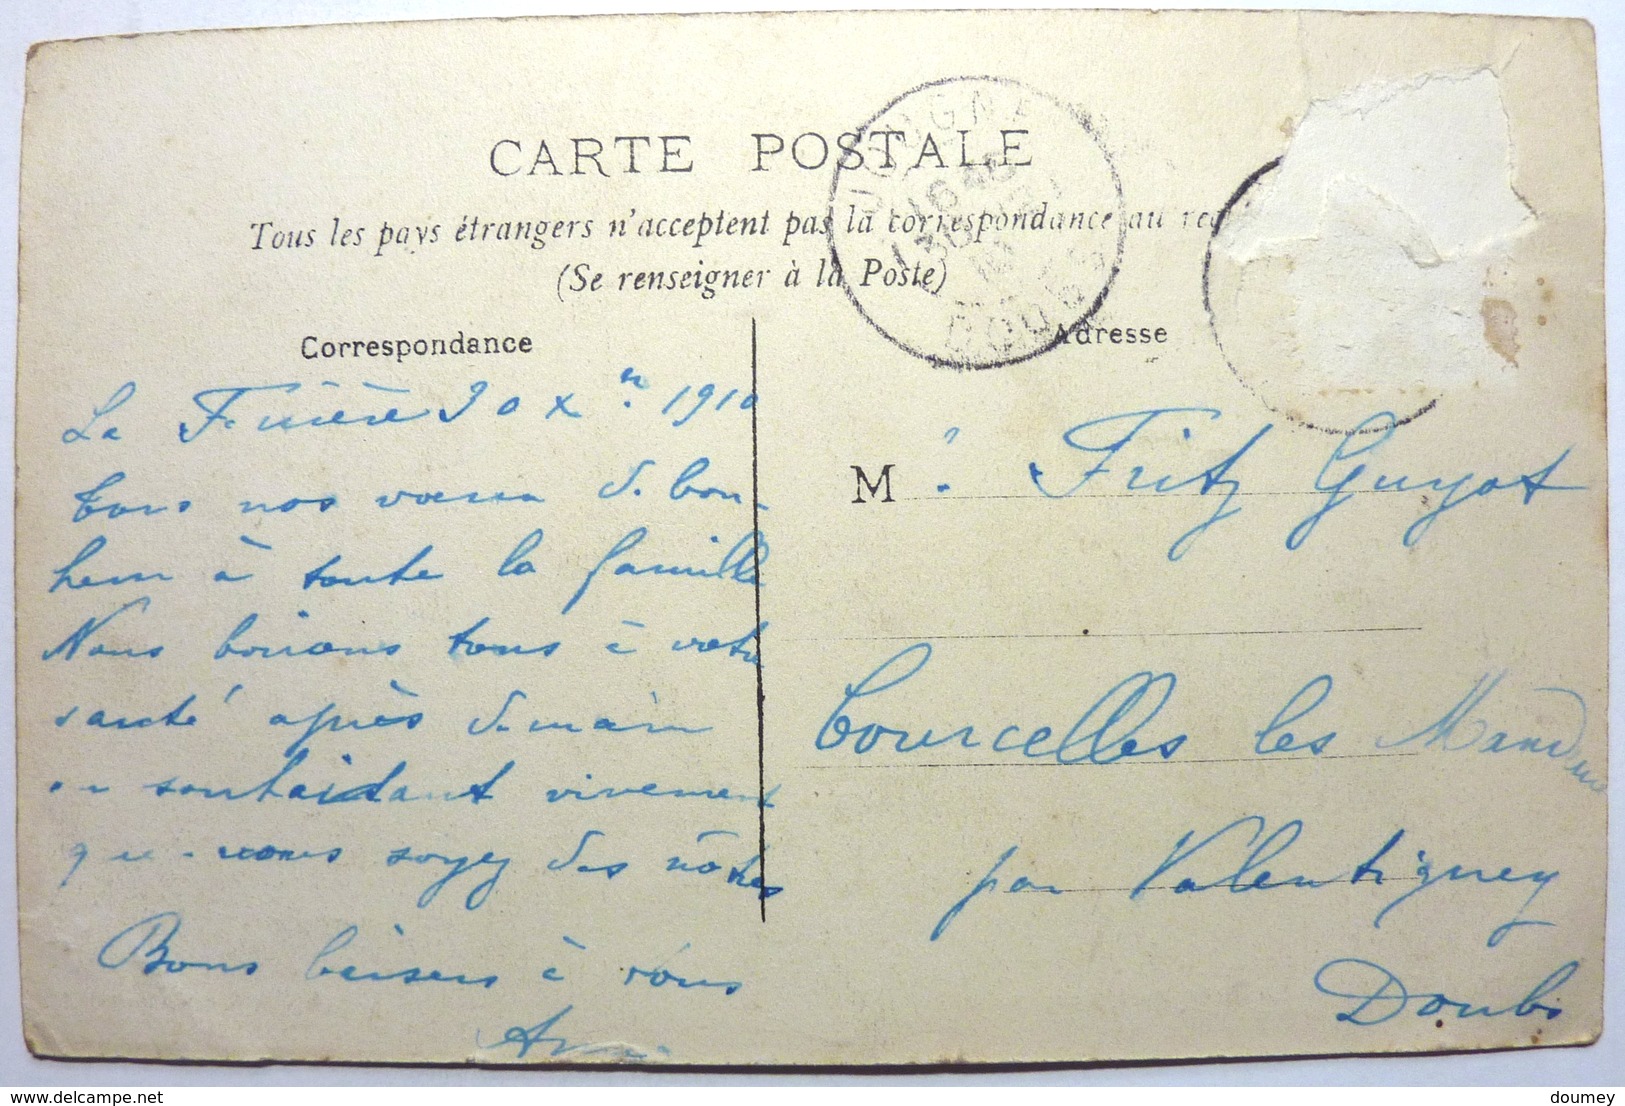 CARTE POSTALE
Tous les pays étrangers n'acceptent pas la correspondance au rec
(Se renseigner à la Poste)
Correspondance
La 30 Xre 1910
tous nos voeux de bon-
heur à toute la famille
Nous boirons tous à votre
santé après demain
en souhaitant vivement
que vous soyez des nôtres
Bons baisers à vous
Adresse
M r Fritz Guyot
Courcelles les Mandeure
par Valentigney
Doubs
DOUBS
delcampe.net
doumey